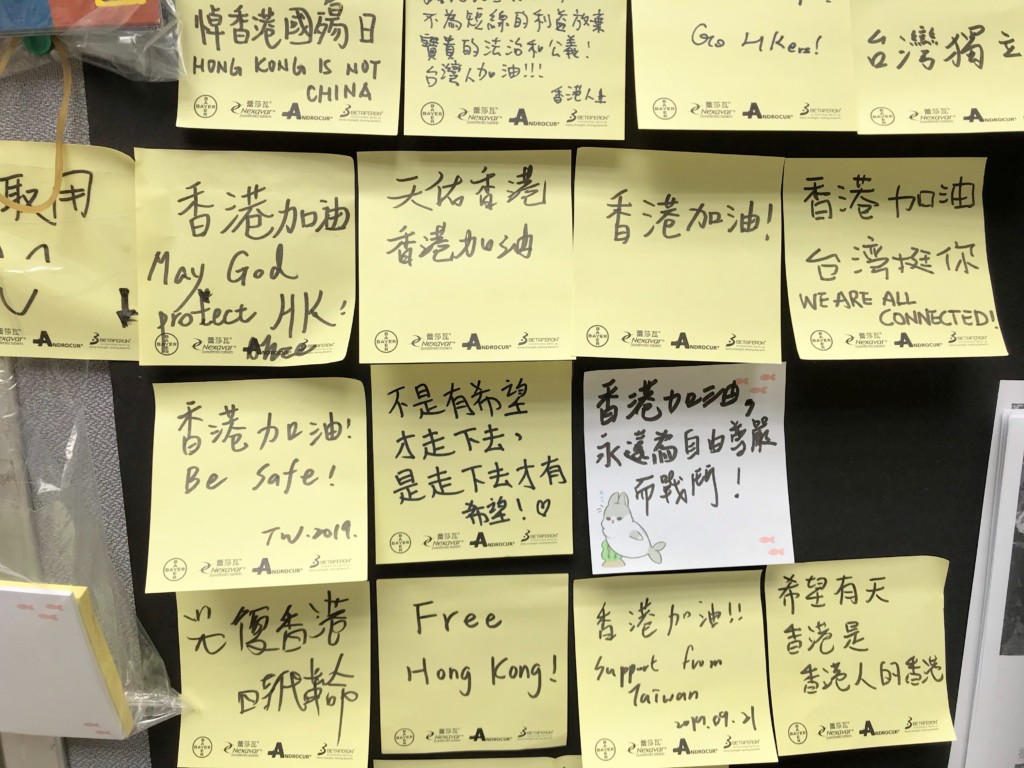 悼香港國殤日
HONG KONG IS NOT
CHINA
BAYER 蕾莎瓦 Nexavar ANDROCUR BETAFERON
不為短線的利益放棄
寶貴的法治和公義!
台灣人加油!!!
香港人上
BAYER 蕾莎瓦 Nexavar ANDROCUR BETAFERON
Go HKers!
BAYER 蕾莎瓦 Nexavar ANDROCUR BETAFERON
台灣獨立
BAYER 蕾莎瓦 Nexavar ANDROCUR
取用
ANDROCUR BETAFERON
香港加油
May God
protect HK!
BAYER 蕾莎瓦 Nexavar ANDROCUR BETAFERON
天佑香港
香港加油
BAYER 蕾莎瓦 Nexavar ANDROCUR BETAFERON
香港加油!
BAYER 蕾莎瓦 Nexavar ANDROCUR BETAFERON
香港加油
台湾挺你
WE ARE ALL
CONNECTED!
BAYER 蕾莎瓦 Nexavar ANDROCUR BETAFERON
香港加油!
Be safe!
TW.2019.
BAYER 蕾莎瓦 Nexavar ANDROCUR BETAFERON
不是有希望
才走下去,
是走下去才有
希望!♡
BAYER 蕾莎瓦 Nexavar ANDROCUR BETAFERON
香港加油,
永遠為自由尊嚴
而戰鬥!
光復香港
BAYER 蕾莎瓦 Nexavar ANDROCUR BETAFERON
Free
Hong Kong!
BAYER 蕾莎瓦 Nexavar ANDROCUR BETAFERON
香港加油!!
Support from
Taiwan
2019.09.21
BAYER 蕾莎瓦 Nexavar ANDROCUR BETAFERON
希望有天
香港是
香港人的香港
BAYER 蕾莎瓦 Nexavar ANDROCUR BETAFERON